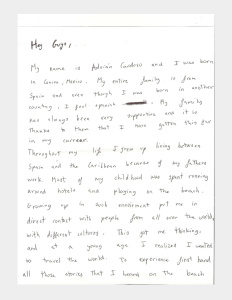 Hey Guys,
My name is Adrián and I was born
in Mexico. My entire family is from
Spain and even though I was born in another
country, I feel spanish. My family
has always been very supportive and it is
thanks to them that I have gotten this far
in my
Throughout my life I grew up living between
Spain and the Caribbean because of my fathers
work. Most of my childhood was spent running
around hotels and playing on the beach.
Growing up in such enviroment put me in
direct contact with people from all over the world,
with different cultures. This got me thinking,
and at a young age I realized I wanted
to travel the world. To experience first hand
all those stories that I heard on the beach